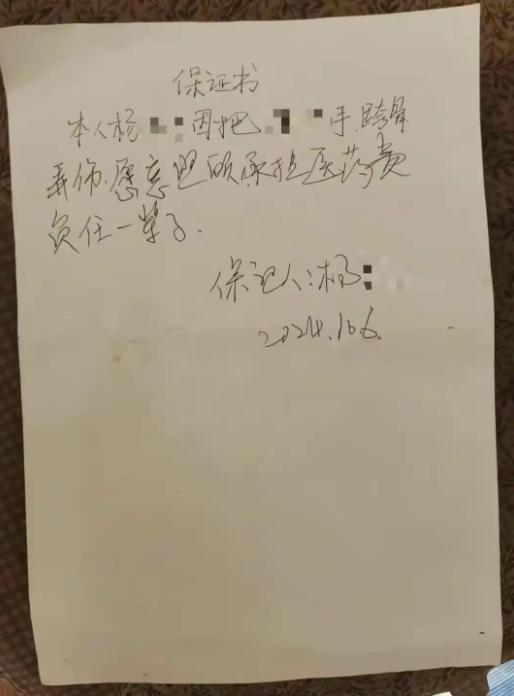 保证书
本人杨 因把 手、胯骨
弄伤.愿意照顾承担医药费
负任一辈子.
保证人:杨
2024.10.6.